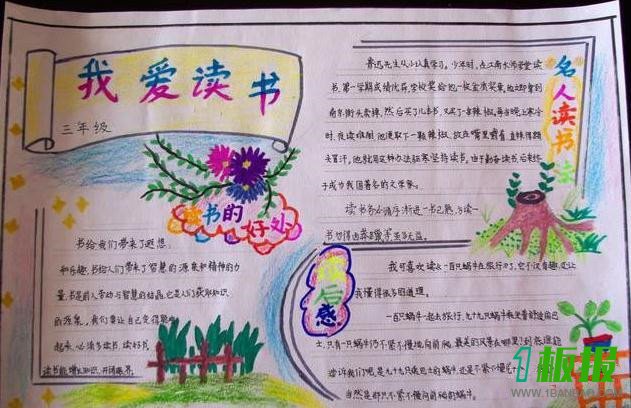 我爱读书
三年级
读书的好处
书给我们带来了遐想
和乐趣，书给人们带来了智慧的源泉和精神的力
量，书是前人劳动与智慧的结晶，它是人们获取知识
的源泉，我们要让自己变得聪明
起来，必须多读书，读好书，
读书能增长知识，开阔眼界，
名人读书法
鲁迅先生从小认真学习。少年时，在江南水师学堂读
书，第一学期成绩优异，学校奖给他一枚金质奖章，他立即拿到
南京街头卖掉，然后买了几本书，又买了一串辣椒，每当晚上寒冷
时，夜读难耐，他便取下一颗辣椒，放在嘴里嚼着，直辣得额
头冒汗，他就用这种办法驱寒坚持读书。由于勤奋读书，后来终
于成为我国著名的文学家。
读书务必循序渐进一书已熟，方读一
书
读后感
我可喜欢读《一百只蜗牛去旅行》了，它不仅有趣，还让
我懂得很多的道理。
一百只蜗牛一起去旅行，九十九只蜗牛
只有一只蜗牛仍不紧不慢地向前爬，最美的风景在哪里？到底谁能
告诉我们呢，是九十九只
当然是那只不紧不慢向前爬的蜗牛。
1板报
WWW.1BANBAO.COM